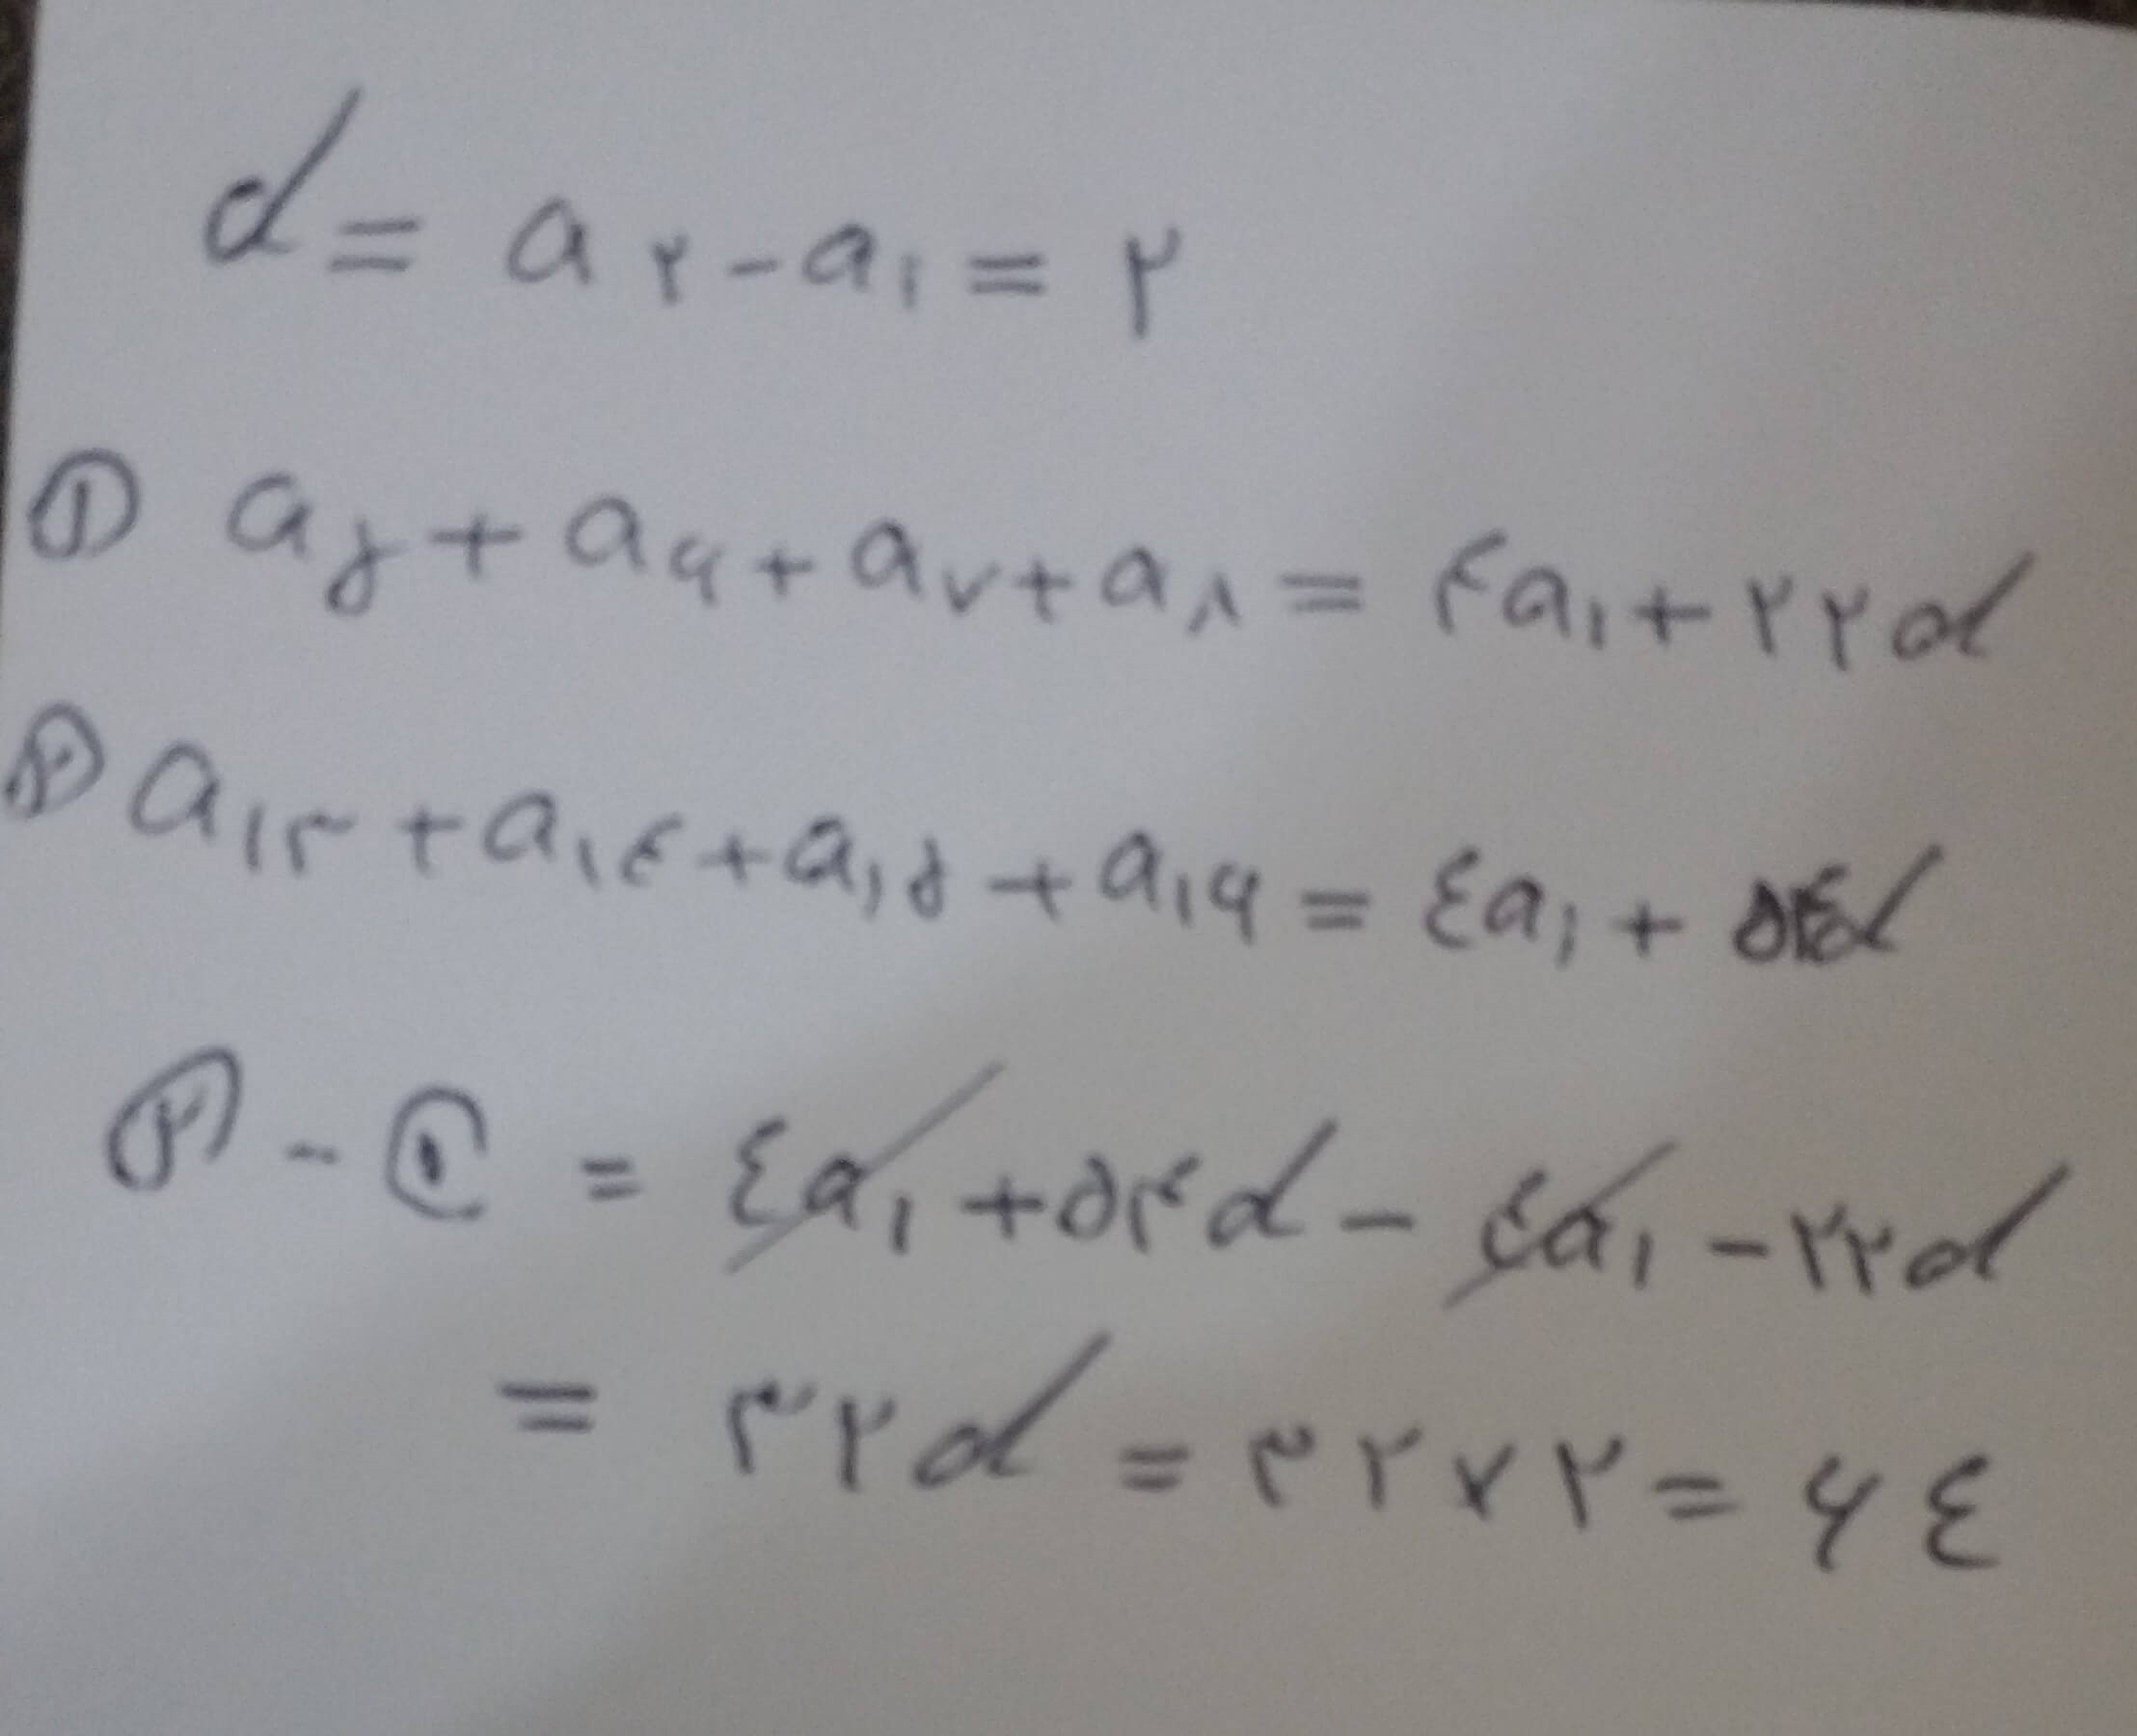 d = a۲ - a۱ = ۲
① a۵ + a۶ + a۷ + a۸ = ۴a۱ + ۲۲d
② a۱۳ + a۱۴ + a۱۵ + a۱۶ = ۴a۱ + ۵۴d
② - ① = ۴a۱ + ۵۴d - ۴a۱ - ۲۲d
= ۳۲d = ۳۲ × ۲ = ۶۴